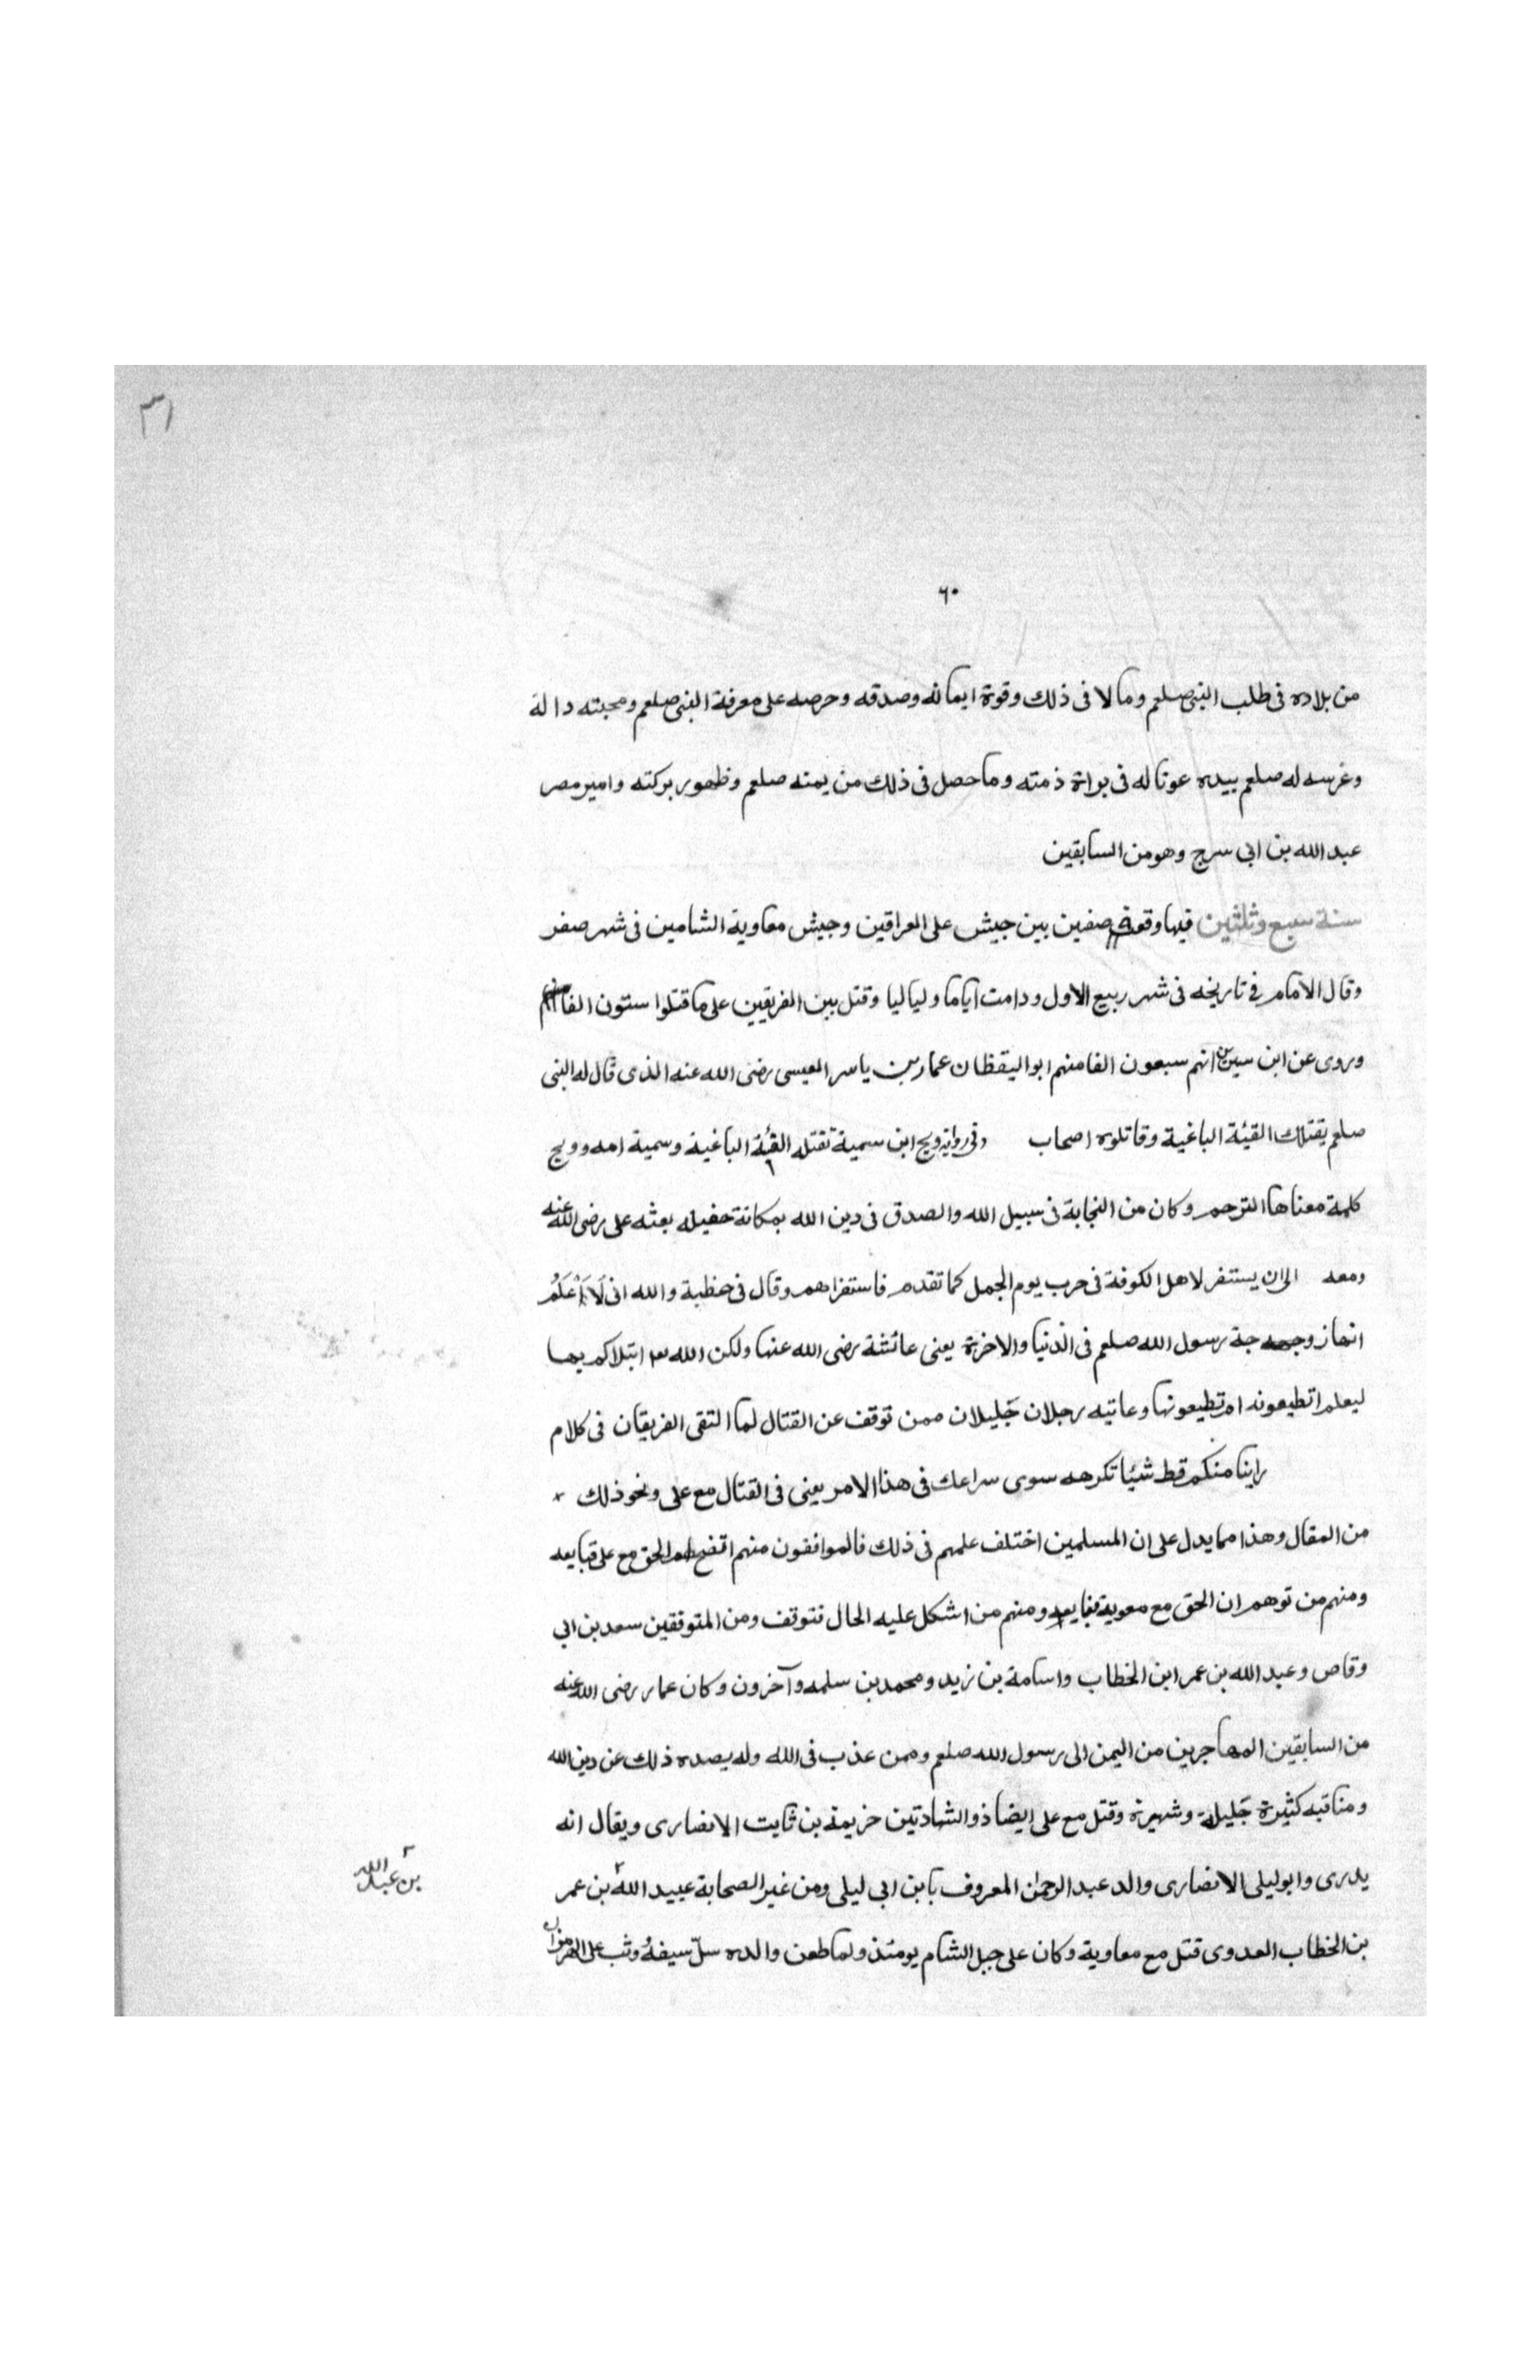 ٣١
٦٠
من بلاده فى طلب النبى صلعم ومالا فى ذلك وقوة ايمانه وصدقه وحرصه على معرفة النبى صلعم ومحبته دالة
وغرسه له صلعم بيده عونا له فى براة ذمته وما حصل فى ذلك من يمنه صلعم وظهور بركته وامير مصر
عبد الله بن ابى سرح وهو من السابقين
سنة سبع وثلثين فيها وقعة صفين بين جيش على العراقين وجيش معاوية الشامين فى شهر صفر
وقال الامام فى تاريخه فى شهر ربيع الاول ودامت اياما ولياليا وقتل بين الفريقين على ما قتلوا ستون الفا
وروى عن ابن سيرين انهم سبعون الفا منهم ابو اليقظان عمار بن ياسر العبسى رضى الله عنه الذى قال له النبى
صلعم يقتلك القيئة الباغية وقاتلوه اصحاب وفى رواية ويح ابن سمية تقتله الفئة الباغية وسمية امه وويح
كلمة معناها الترحم وكان من النجابة فى سبيل الله والصدق فى دين الله بمكانة حفيله بعثه على رضى الله عنه
ومعه الى ان يستنفر لاهل الكوفة فى حرب يوم الجمل كما تقدم فاستفزاهم وقال فى خطبة والله انى لَاَعْلَمُ
انها زوجة رسول الله صلعم فى الدنيا والاخرة يعنى عائشة رضى الله عنها ولكن الله ابتلاكم بها
ليعلم اتطيعونه ام تطيعونها وعاتبه رجلان جَليلان ممن توقف عن القتال لما التقى الفريقان فى كلام
راينا منكم قط شيئا تكرهه سوى سراعك فى هذا الامر يعنى فى القتال مع على ونحو ذلك
من المقال وهذا مما يدل على ان المسلمين اختلف علمهم فى ذلك فالموافقون منهم اتضح لهم الحق مع على قبايعه
ومنهم من توهم ان الحق مع معوية فبايعه ومنهم من اشكل عليه الحال فتوقف ومن المتوقفين سعد بن ابى
وقاص وعبد الله بن عمر ابن الخطاب واسامة بن زيد ومحمد بن سلمه وآخرون وكان عمار رضى الله عنه
من السابقين المهاجرين من اليمن الى رسول الله صلعم وممن عذب فى الله وله يصده ذلك عن دين الله
ومناقبه كثيرة جَليلة وشهيرة وقتل مع على ايضا ذو الشهادتين خزيمة بن ثابت الانصارى ويقال انه
يدرى وابو ليلى الانصارى والد عبد الرحمن المعروف بابن ابى ليلى ومن غير الصحابة عبيد الله بن عمر
بن عبد الله
بن الخطاب العدوى قتل مع معاوية وكان على جبل الشام يومئذ ولما طعن والده سلّ سيفهُ وثب على الهرمزان